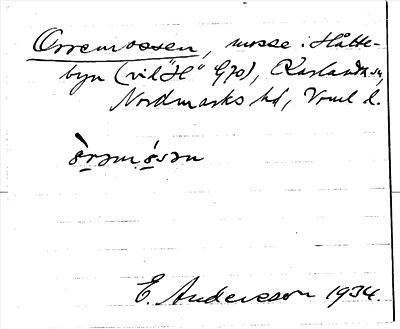 Orremossen, mosse i Hålte-
byn (vid "H" G70), Karlanda sn,
Nordmarks hd, Vrml. l.
òrəmósən
E. Andersson 1934.